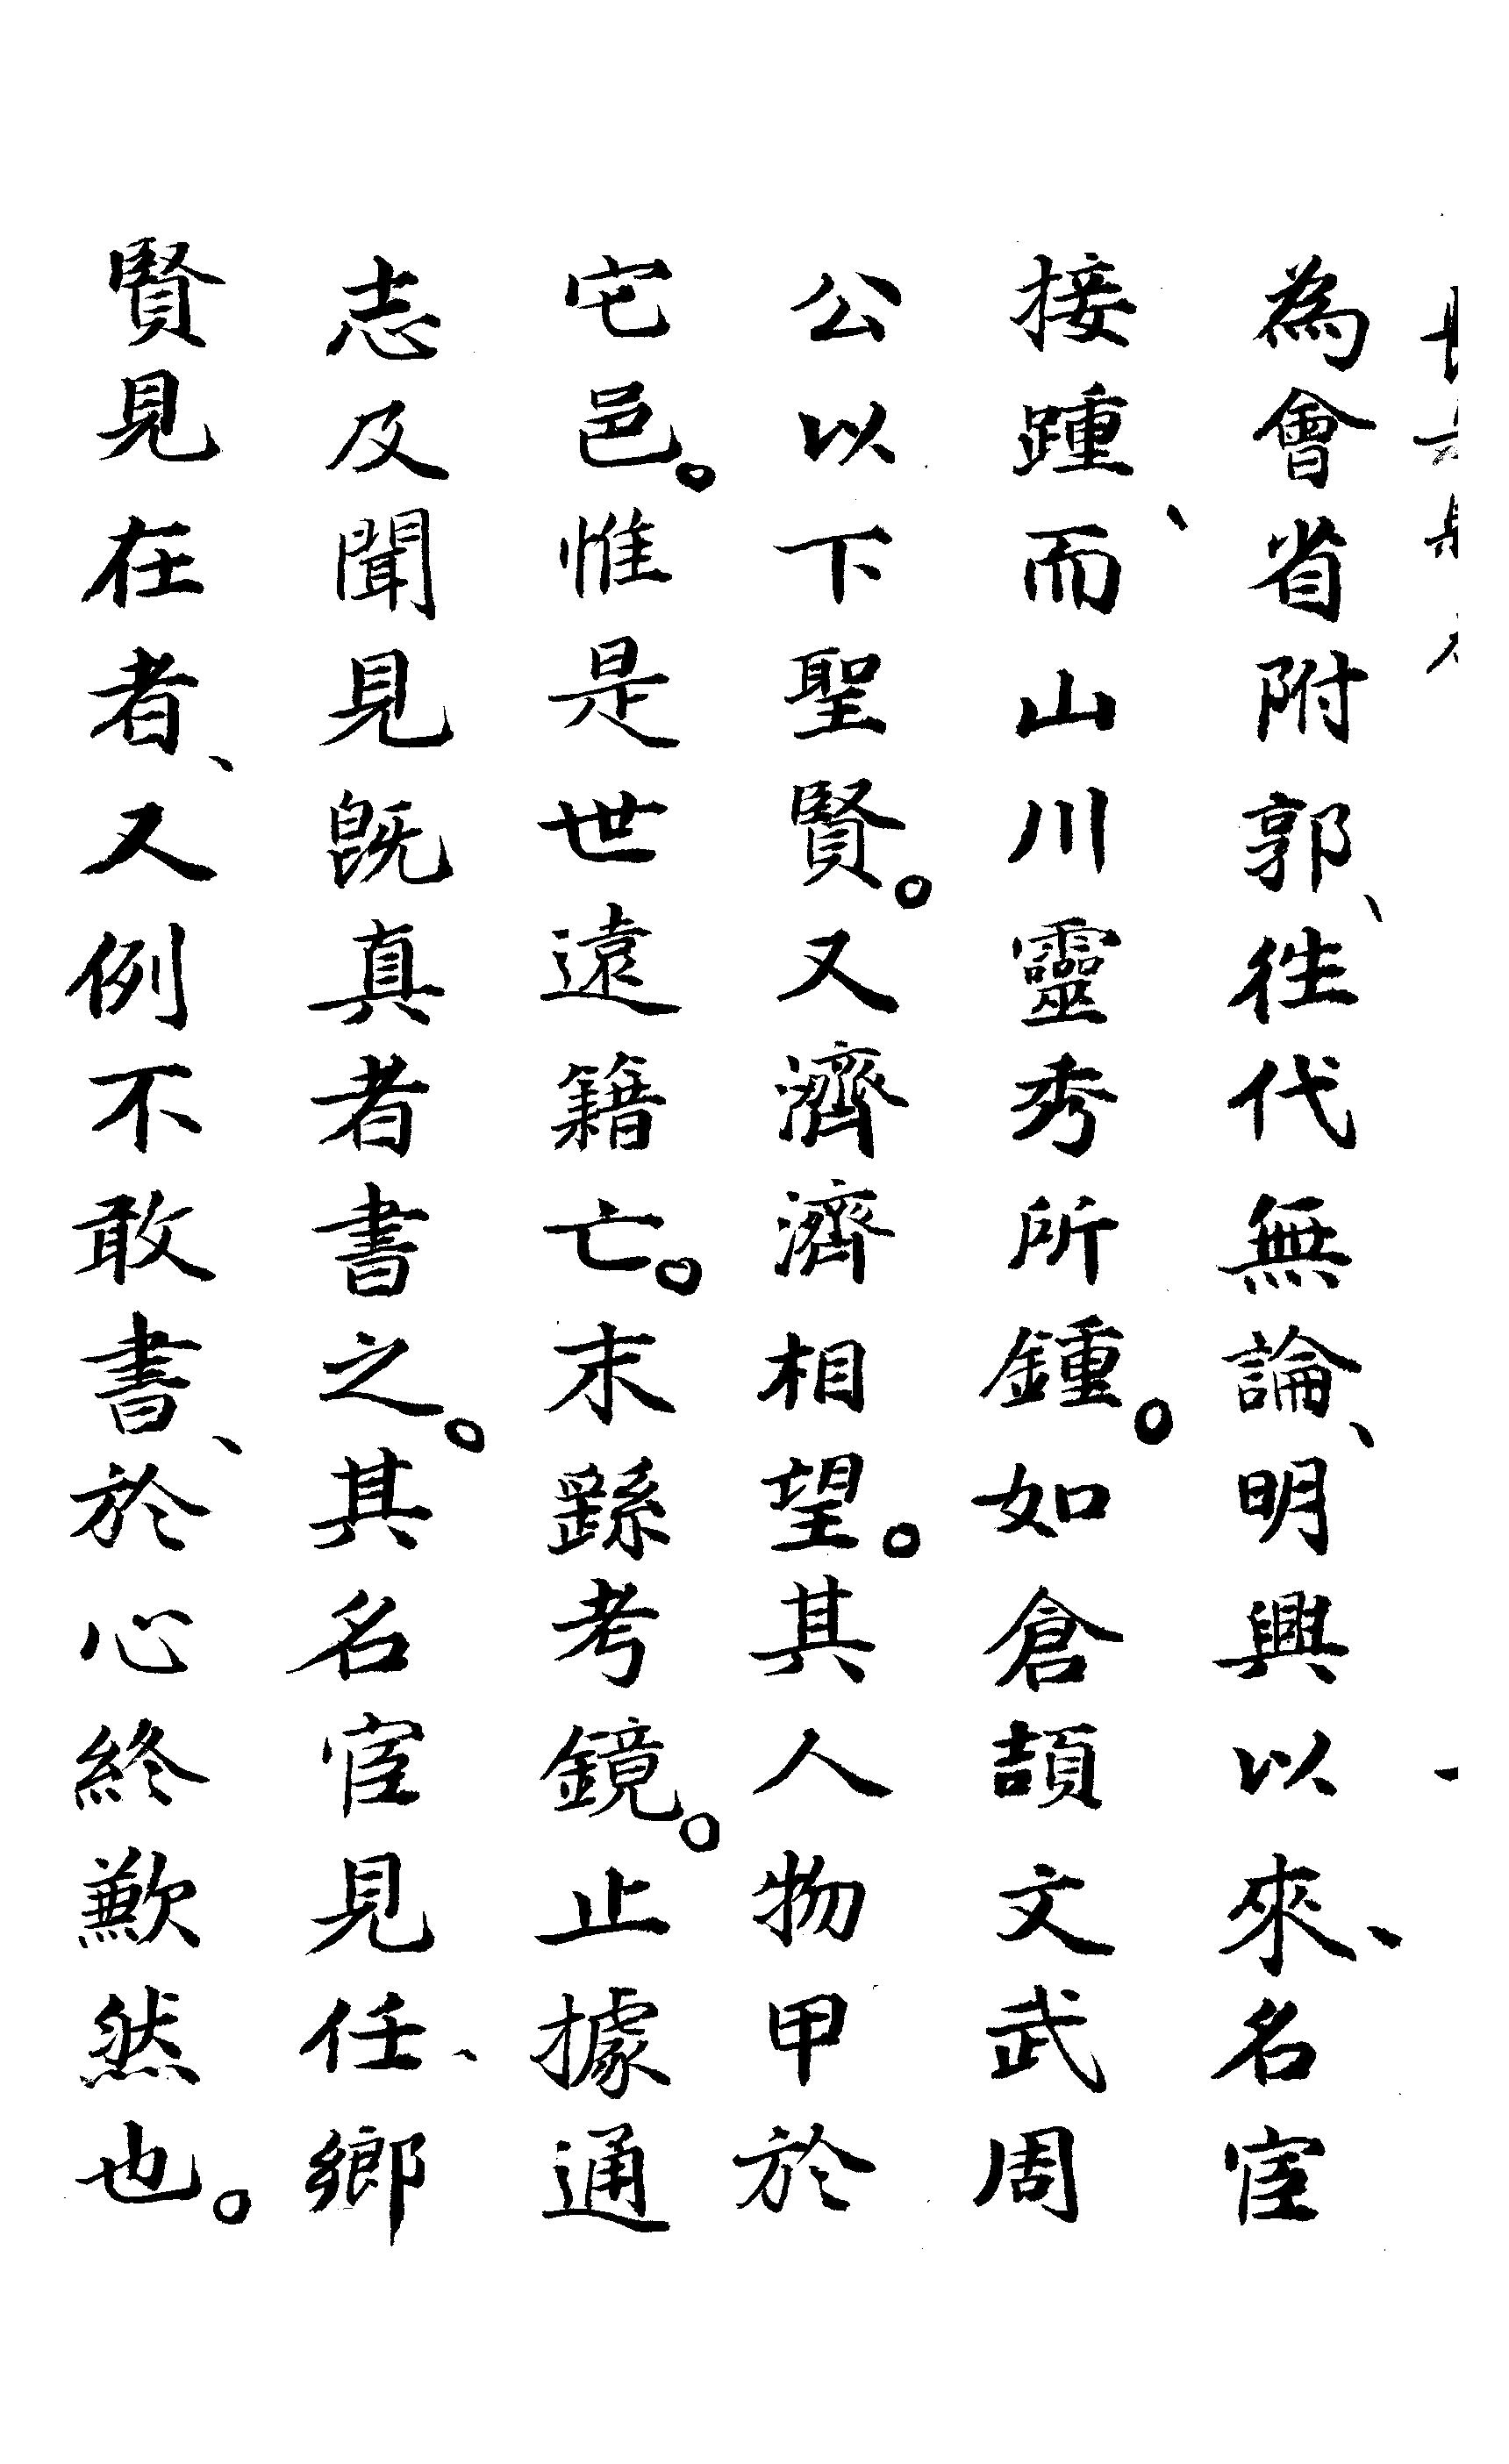 為會省附郭、徃代無論、明興以來、名宦
接踵、而山川靈秀所鍾。如倉頡文武周
公以下聖賢。又濟濟相望。其人物甲於
宅邑。惟是世遠籍亡。末繇考鏡。止據通
志及聞見既真者書之。其名宦見任、鄉
賢見在者、又例不敢書、於心終歉然也。